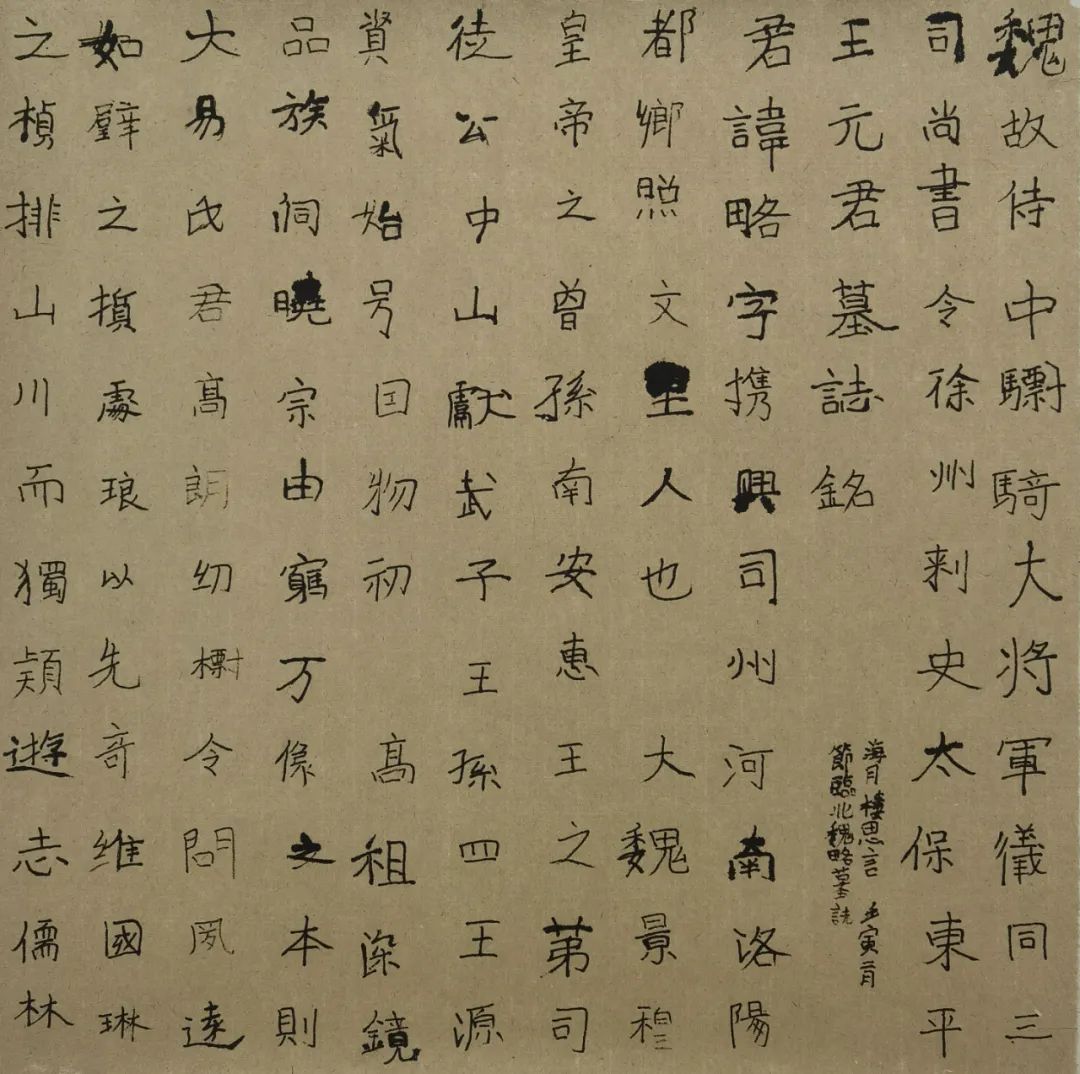 魏故侍中驃騎大將軍儀同三
司尚書令徐州刺史太保東平
王元君墓誌銘
海月樓思言 壬寅二月
節臨北魏略墓誌
君諱略字携興司州河南洛陽
都鄉照文里人也大魏景穆
皇帝之曾孫南安惠王之第司
徒公中山獻武子王孫四王源
資氣始号因物初高祖深鏡
品族洞曉宗由窮万像之本則
大易氏君高朗幼摽令問夙遠
如璧之損處琅以先奇維國琳
之楨排山川而獨穎遊志儒林